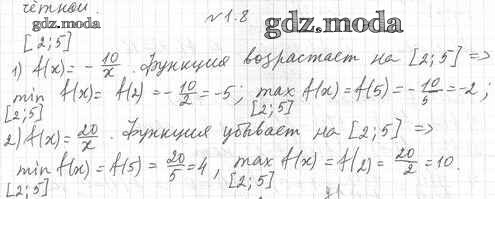 чётной.
№1.8
gdz.moda
gdz.moda
[2;5]
1) f(x) = -10/x. Функция возрастает на [2;5] =>
min f(x) = f(2) = -10/2 = -5; max f(x) = f(5) = -10/5 = -2;
[2;5] [2;5]
2) f(x) = 20/x. Функция убывает на [2;5] =>
min f(x) = f(5) = 20/5 = 4, max f(x) = f(2) = 20/2 = 10.
[2;5] [2;5]